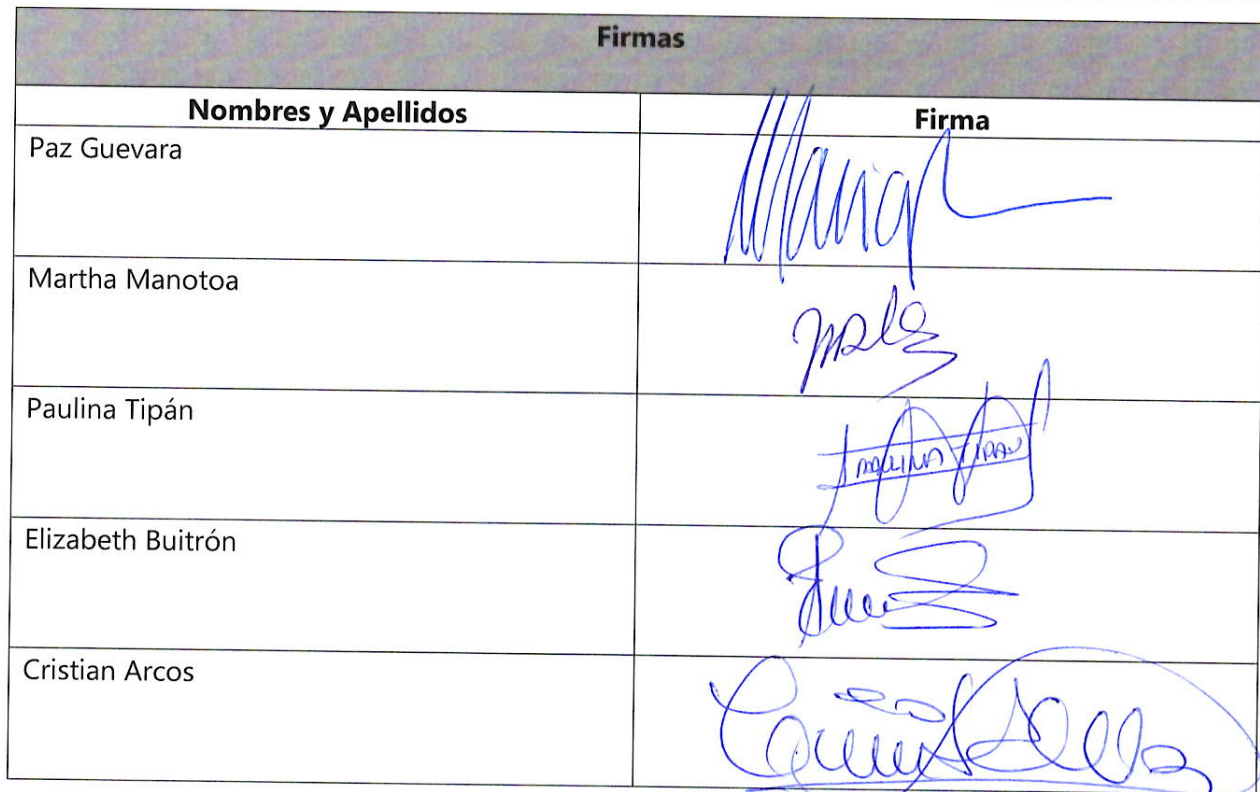 Firmas
Nombres y Apellidos Firma
Paz Guevara
Martha Manotoa
Paulina Tipán
Paulina Tipan
Elizabeth Buitrón
Cristian Arcos